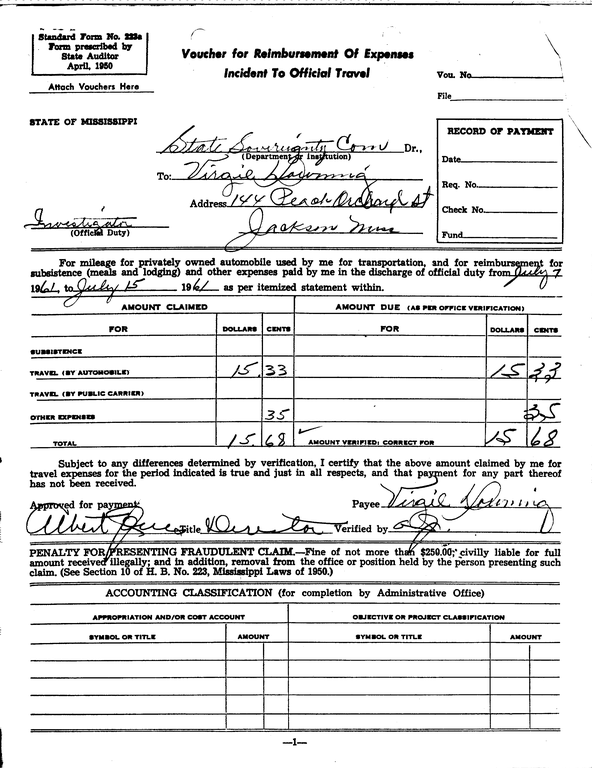 Standard Form No. 223a
Form prescribed by
State Auditor
April, 1950
Attach Vouchers Here
Voucher for Reimbursement Of Expenses
Incident To Official Travel
Vou. No.
File
STATE OF MISSISSIPPI
State Sovereignty Com Dr.,
(Department or Institution)
To: Virgil Downing
Address 144 Peach Orchard St
Jackson Miss
Investigator
(Official Duty)
RECORD OF PAYMENT
Date
Req. No.
Check No.
Fund
For mileage for privately owned automobile used by me for transportation, and for reimbursement for
subsistence (meals and lodging) and other expenses paid by me in the discharge of official duty from July 7
1961, to July 15 1961 as per itemized statement within.
AMOUNT CLAIMED AMOUNT DUE (AS PER OFFICE VERIFICATION)
FOR DOLLARS CENTS FOR DOLLARS CENTS
SUBSISTENCE
TRAVEL (BY AUTOMOBILE) 15.33 15 33
TRAVEL (BY PUBLIC CARRIER)
OTHER EXPENSES 35 35
TOTAL 15.68 AMOUNT VERIFIED: CORRECT FOR 15 68
Subject to any differences determined by verification, I certify that the above amount claimed by me for
travel expenses for the period indicated is true and just in all respects, and that payment for any part thereof
has not been received.
Approved for payment: Payee Virgil Downing
Albert Title Director Verified by
PENALTY FOR PRESENTING FRAUDULENT CLAIM.—Fine of not more than $250.00; civilly liable for full
amount received illegally; and in addition, removal from the office or position held by the person presenting such
claim. (See Section 10 of H. B. No. 223, Mississippi Laws of 1950.)
ACCOUNTING CLASSIFICATION (for completion by Administrative Office)
APPROPRIATION AND/OR COST ACCOUNT OBJECTIVE OR PROJECT CLASSIFICATION
SYMBOL OR TITLE AMOUNT SYMBOL OR TITLE AMOUNT
—1—